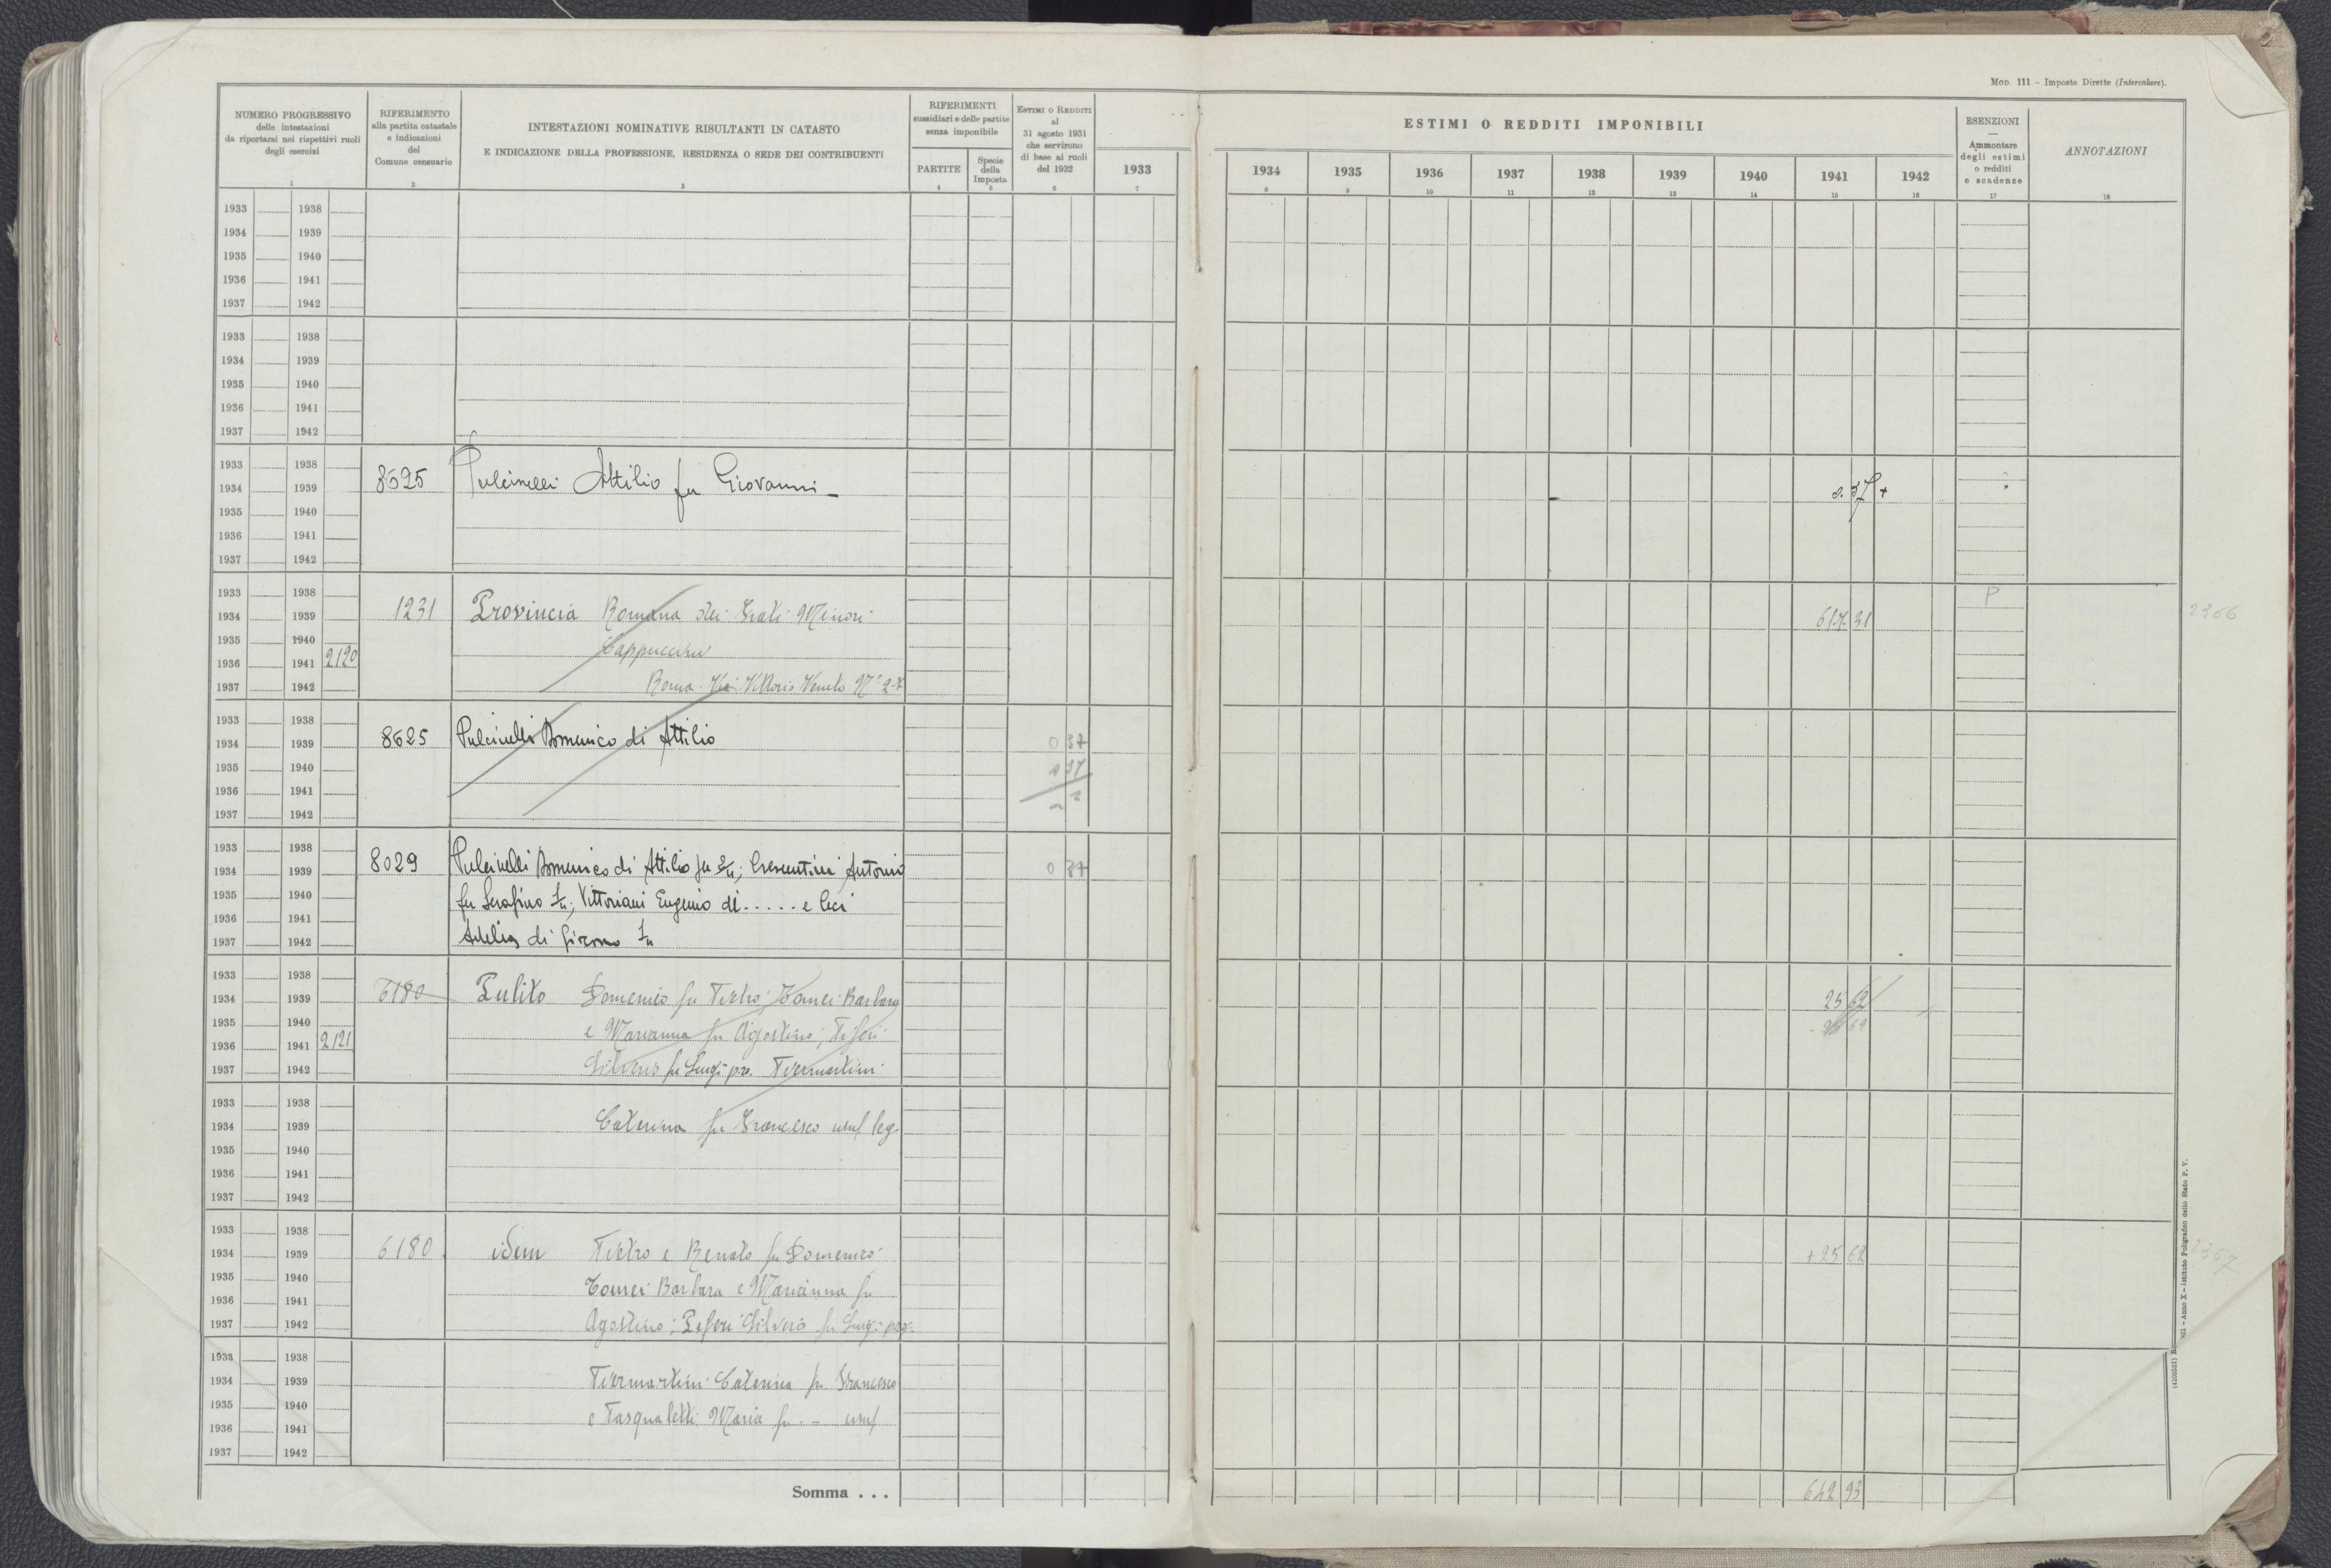 MOD. 111 - Imposte Dirette (Intercalare).
NUMERO PROGRESSIVO
delle intestazioni
da riportarsi nei rispettivi ruoli
degli esercizi
1
RIFERIMENTO
alla partita catastale
e indicazioni
del
Comune censuario
2
INTESTAZIONI NOMINATIVE RISULTANTI IN CATASTO
E INDICAZIONE DELLA PROFESSIONE, RESIDENZA O SEDE DEI CONTRIBUENTI
3
RIFERIMENTI
sussidiari e delle partite
senza imponibile
PARTITE
4
Specie
della
Imposta
5
ESTIMI O REDDITI
al
31 agosto 1931
che servirono
di base ai ruoli
del 1932
6
1933
7
ESTIMI O REDDITI IMPONIBILI
1934 1935 1936 1937 1938 1939 1940 1941 1942
8 9 10 11 12 13 14 15 16
ESENZIONI
—
Ammontare
degli estimi
o redditi
e scadenze
17
ANNOTAZIONI
18
1933 1938
1934 1939
1935 1940
1936 1941
1937 1942
1933 1938
1934 1939
1935 1940
1936 1941
1937 1942
1933 1938
1934 1939 8625 Pulcinelli Attilio fu Giovanni - 0.37 +
1935 1940
1936 1941
1937 1942
1933 1938 P
1934 1939 1231 Provincia Romana dei Frati Minori 617 31 2366
1935 1940 Cappuccini
1936 1941 2120
1937 1942 Roma - Via Vittorio Veneto N° 27
1933 1938
1934 1939 8625 Pulcinelli Domenico di Attilio 0 37
1935 1940 0 37
1936 1941
1937 1942
1933 1938
1934 1939 8029 Pulcinelli Domenico di Attilio per; Crescentini Antonio 0 37
1935 1940 fu Serafino; Vittoriani Eugenio di ..... e Ceci
1936 1941
1937 1942 Adelia di Girormo
1933 1938
1934 1939 6180 Pulito Domenico fu Pietro; Tomei Barbara 25 62
1935 1940 e Marianna fu Agostino; Piferi 25 62
1936 1941 2121
1937 1942 Silverio fu Luigi pro. Piermartini
1933 1938
1934 1939 Caterina fu Francesco usuf leg.
1935 1940
1936 1941
1937 1942
1933 1938
1934 1939 6180 idem Pietro e Renato fu Domenico + 25 62 2367
1935 1940 Tomei Barbara e Marianna fu
1936 1941
1937 1942 Agostino; Piferi Silverio fu Luigi pro.
1933 1938
1934 1939 Piermartini Caterina fu Francesco
1935 1940 e Pasqualetti Maria fu - - usuf
1936 1941
1937 1942
Somma . . . 642 93
Anno X - Istituto Poligrafico dello Stato P. V.